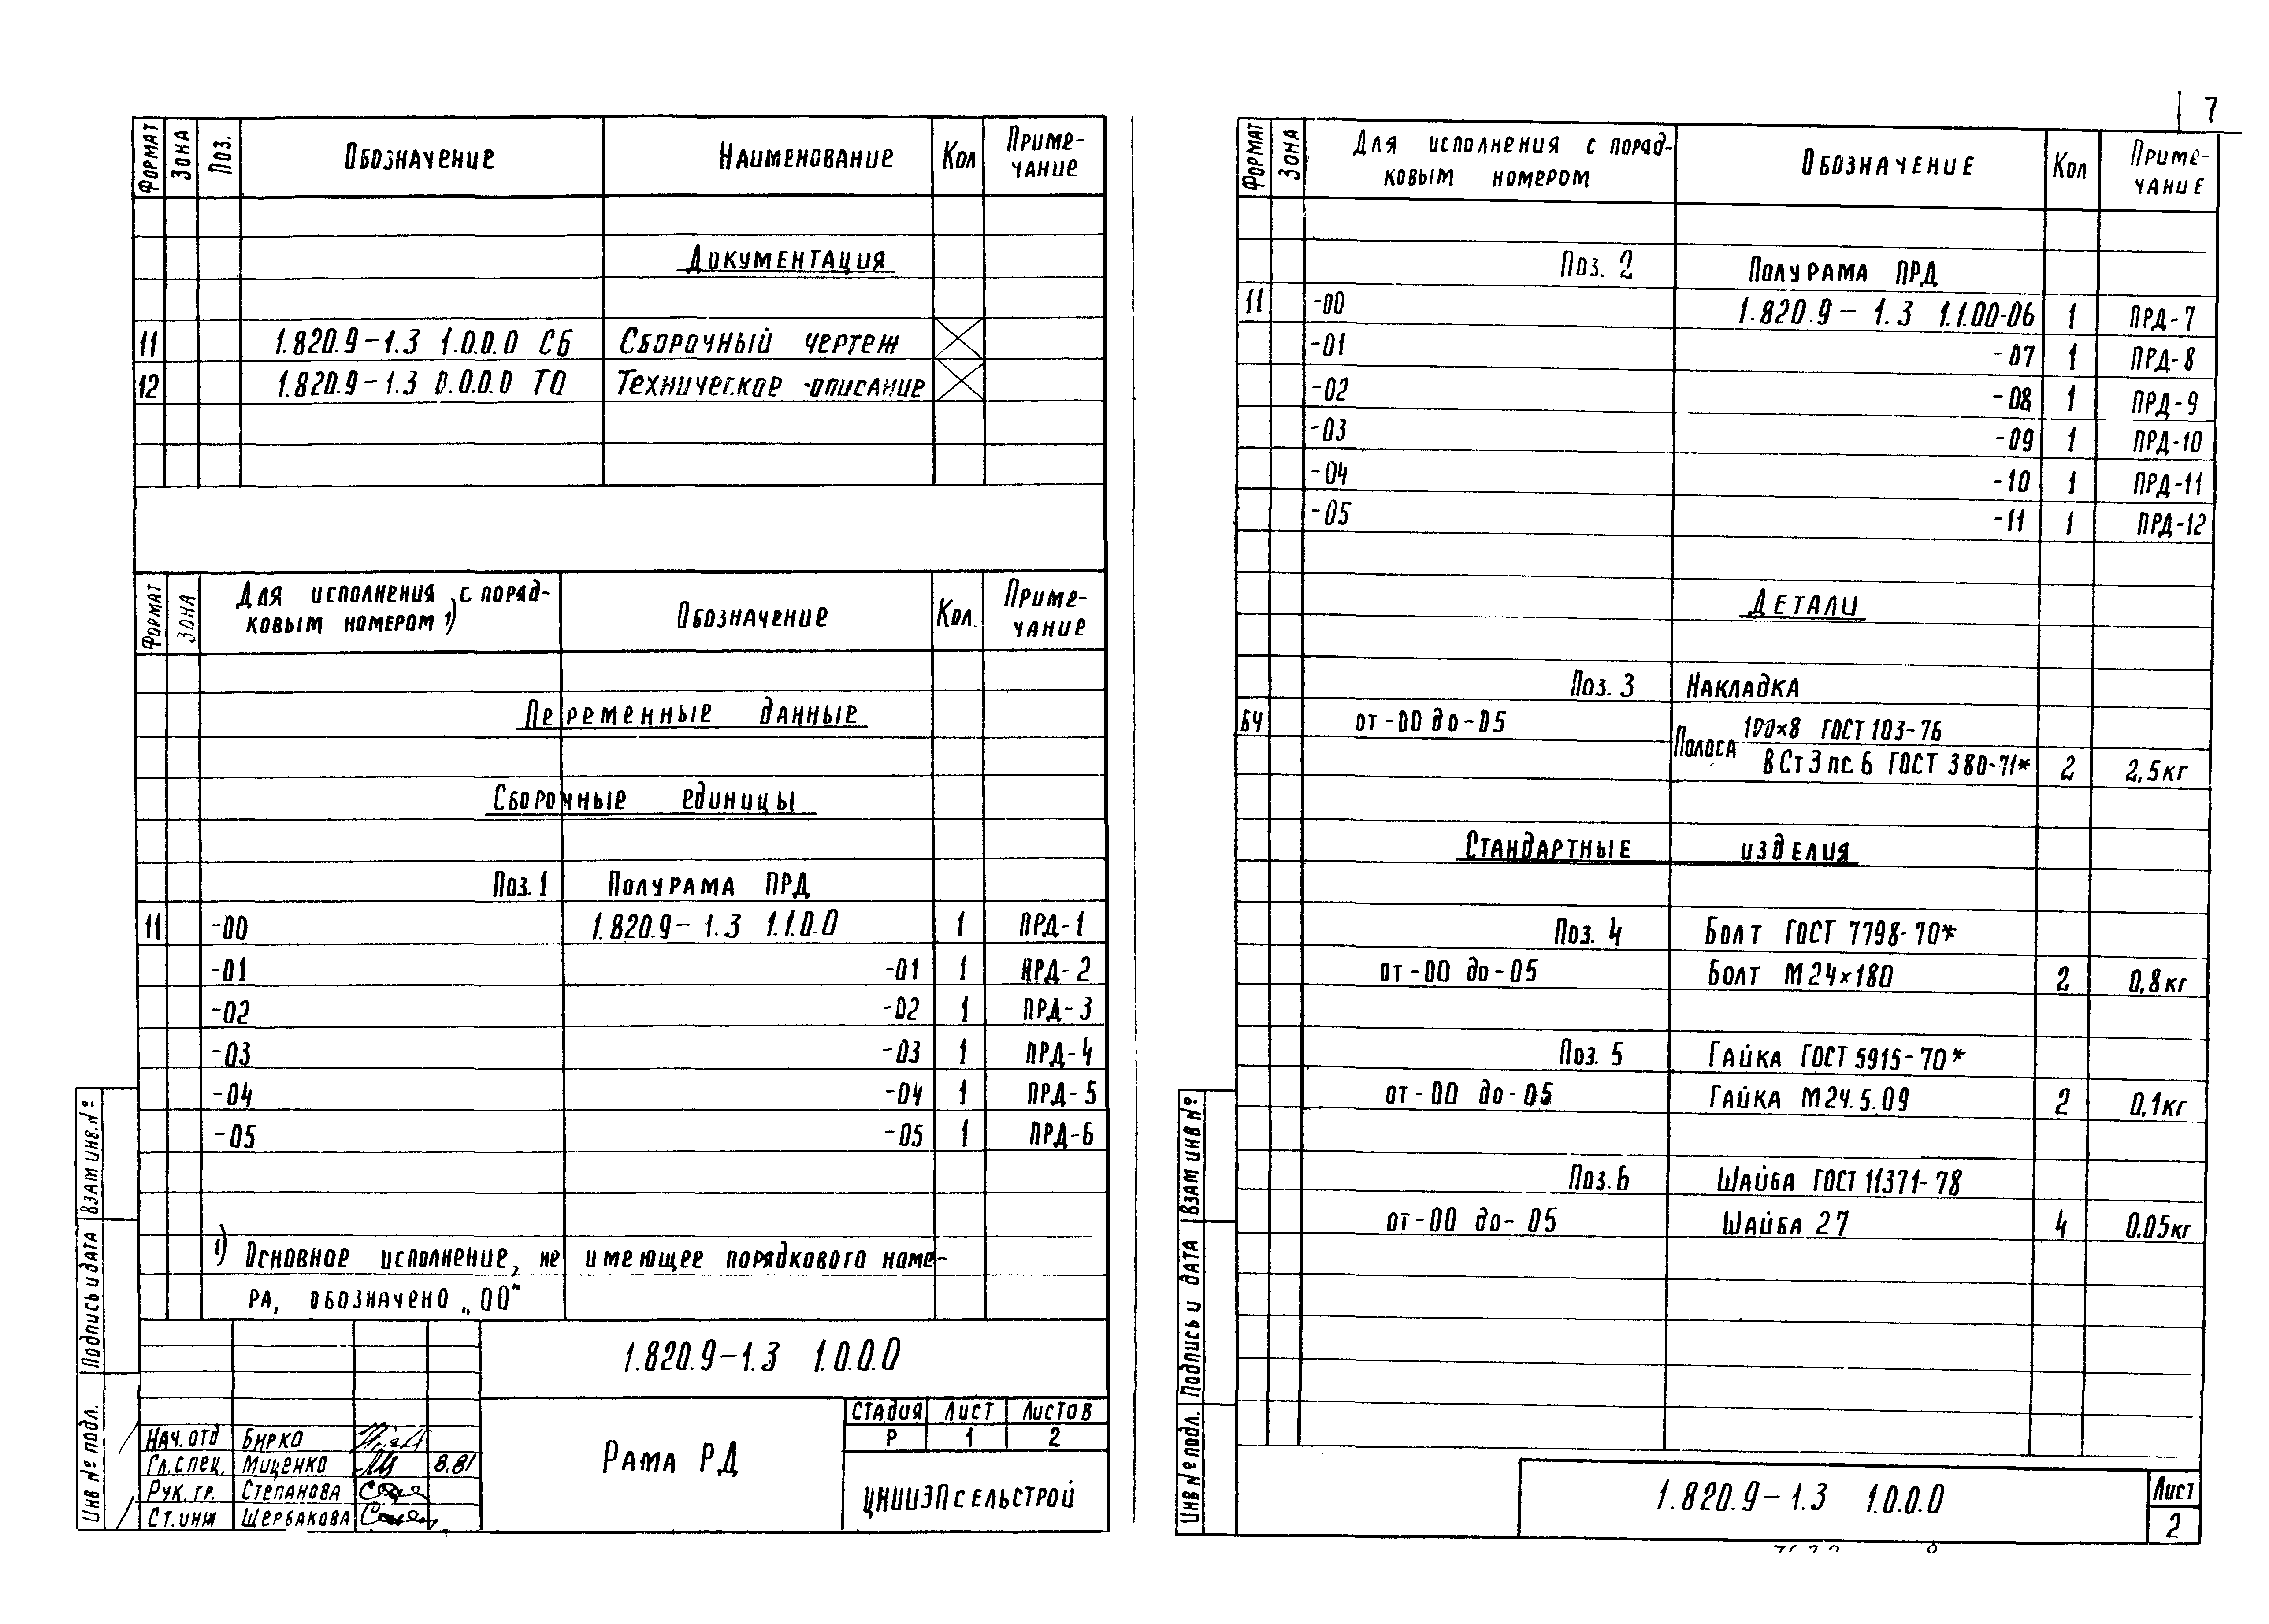 7
ФОРМАТ ЗОНА ПОЗ. ОБОЗНАЧЕНИЕ НАИМЕНОВАНИЕ КОЛ ПРИМЕ-
ЧАНИЕ
ДОКУМЕНТАЦИЯ
11 1.820.9-1.3 1.0.0.0 СБ СБОРОЧНЫЙ ЧЕРТЕЖ
12 1.820.9-1.3 0.0.0.0 ТО ТЕХНИЧЕСКОЕ ОПИСАНИЕ
ФОРМАТ ЗОНА ДЛЯ ИСПОЛНЕНИЯ С ПОРЯД- ОБОЗНАЧЕНИЕ КОЛ. ПРИМЕ-
КОВЫМ НОМЕРОМ 1) ЧАНИЕ
ПЕРЕМЕННЫЕ ДАННЫЕ
СБОРОЧНЫЕ ЕДИНИЦЫ
ПОЗ. 1 ПОЛУРАМА ПРД
11 -00 1.820.9-1.3 1.1.0.0 1 ПРД-1
-01 -01 1 ПРД-2
-02 -02 1 ПРД-3
-03 -03 1 ПРД-4
-04 -04 1 ПРД-5
-05 -05 1 ПРД-6
1) ОСНОВНОЕ ИСПОЛНЕНИЕ, НЕ ИМЕЮЩЕЕ ПОРЯДКОВОГО НОМЕ-
РА, ОБОЗНАЧЕНО „00"
1.820.9-1.3 1.0.0.0
РАМА РД
СТАДИЯ ЛИСТ ЛИСТОВ
Р 1 2
ЦНИИЭПСЕЛЬСТРОЙ
НАЧ. ОТД БИРКО
ГЛ. СПЕЦ. МИЦЕНКО 8.81
РУК. ГР. СТЕПАНОВА
СТ. ИНЖ ЩЕРБАКОВА
ВЗАМ ИНВ. №
ПОДПИСЬ И ДАТА
ИНВ № ПОДЛ.
ФОРМАТ ЗОНА ДЛЯ ИСПОЛНЕНИЯ С ПОРЯД- ОБОЗНАЧЕНИЕ КОЛ ПРИМЕ-
КОВЫМ НОМЕРОМ ЧАНИЕ
ПОЗ. 2 ПОЛУРАМА ПРД
11 -00 1.820.9-1.3 1.1.00-06 1 ПРД-7
-01 -07 1 ПРД-8
-02 -08 1 ПРД-9
-03 -09 1 ПРД-10
-04 -10 1 ПРД-11
-05 -11 1 ПРД-12
ДЕТАЛИ
ПОЗ. 3 НАКЛАДКА
БЧ ОТ -00 ДО -05 ПОЛОСА 100×8 ГОСТ 103-76
ВСт3пс6 ГОСТ 380-71* 2 2,5кг
СТАНДАРТНЫЕ ИЗДЕЛИЯ
ПОЗ. 4 БОЛТ ГОСТ 7798-70*
ОТ -00 ДО -05 БОЛТ М24×180 2 0,8кг
ПОЗ. 5 ГАЙКА ГОСТ 5915-70*
ОТ -00 ДО -05 ГАЙКА М24.5.09 2 0,1кг
ПОЗ. 6 ШАЙБА ГОСТ 11371-78
ОТ -00 ДО -05 ШАЙБА 27 4 0.05кг
ВЗАМ ИНВ №
ПОДПИСЬ И ДАТА
ИНВ № ПОДЛ.
1.820.9-1.3 1.0.0.0
ЛИСТ
2